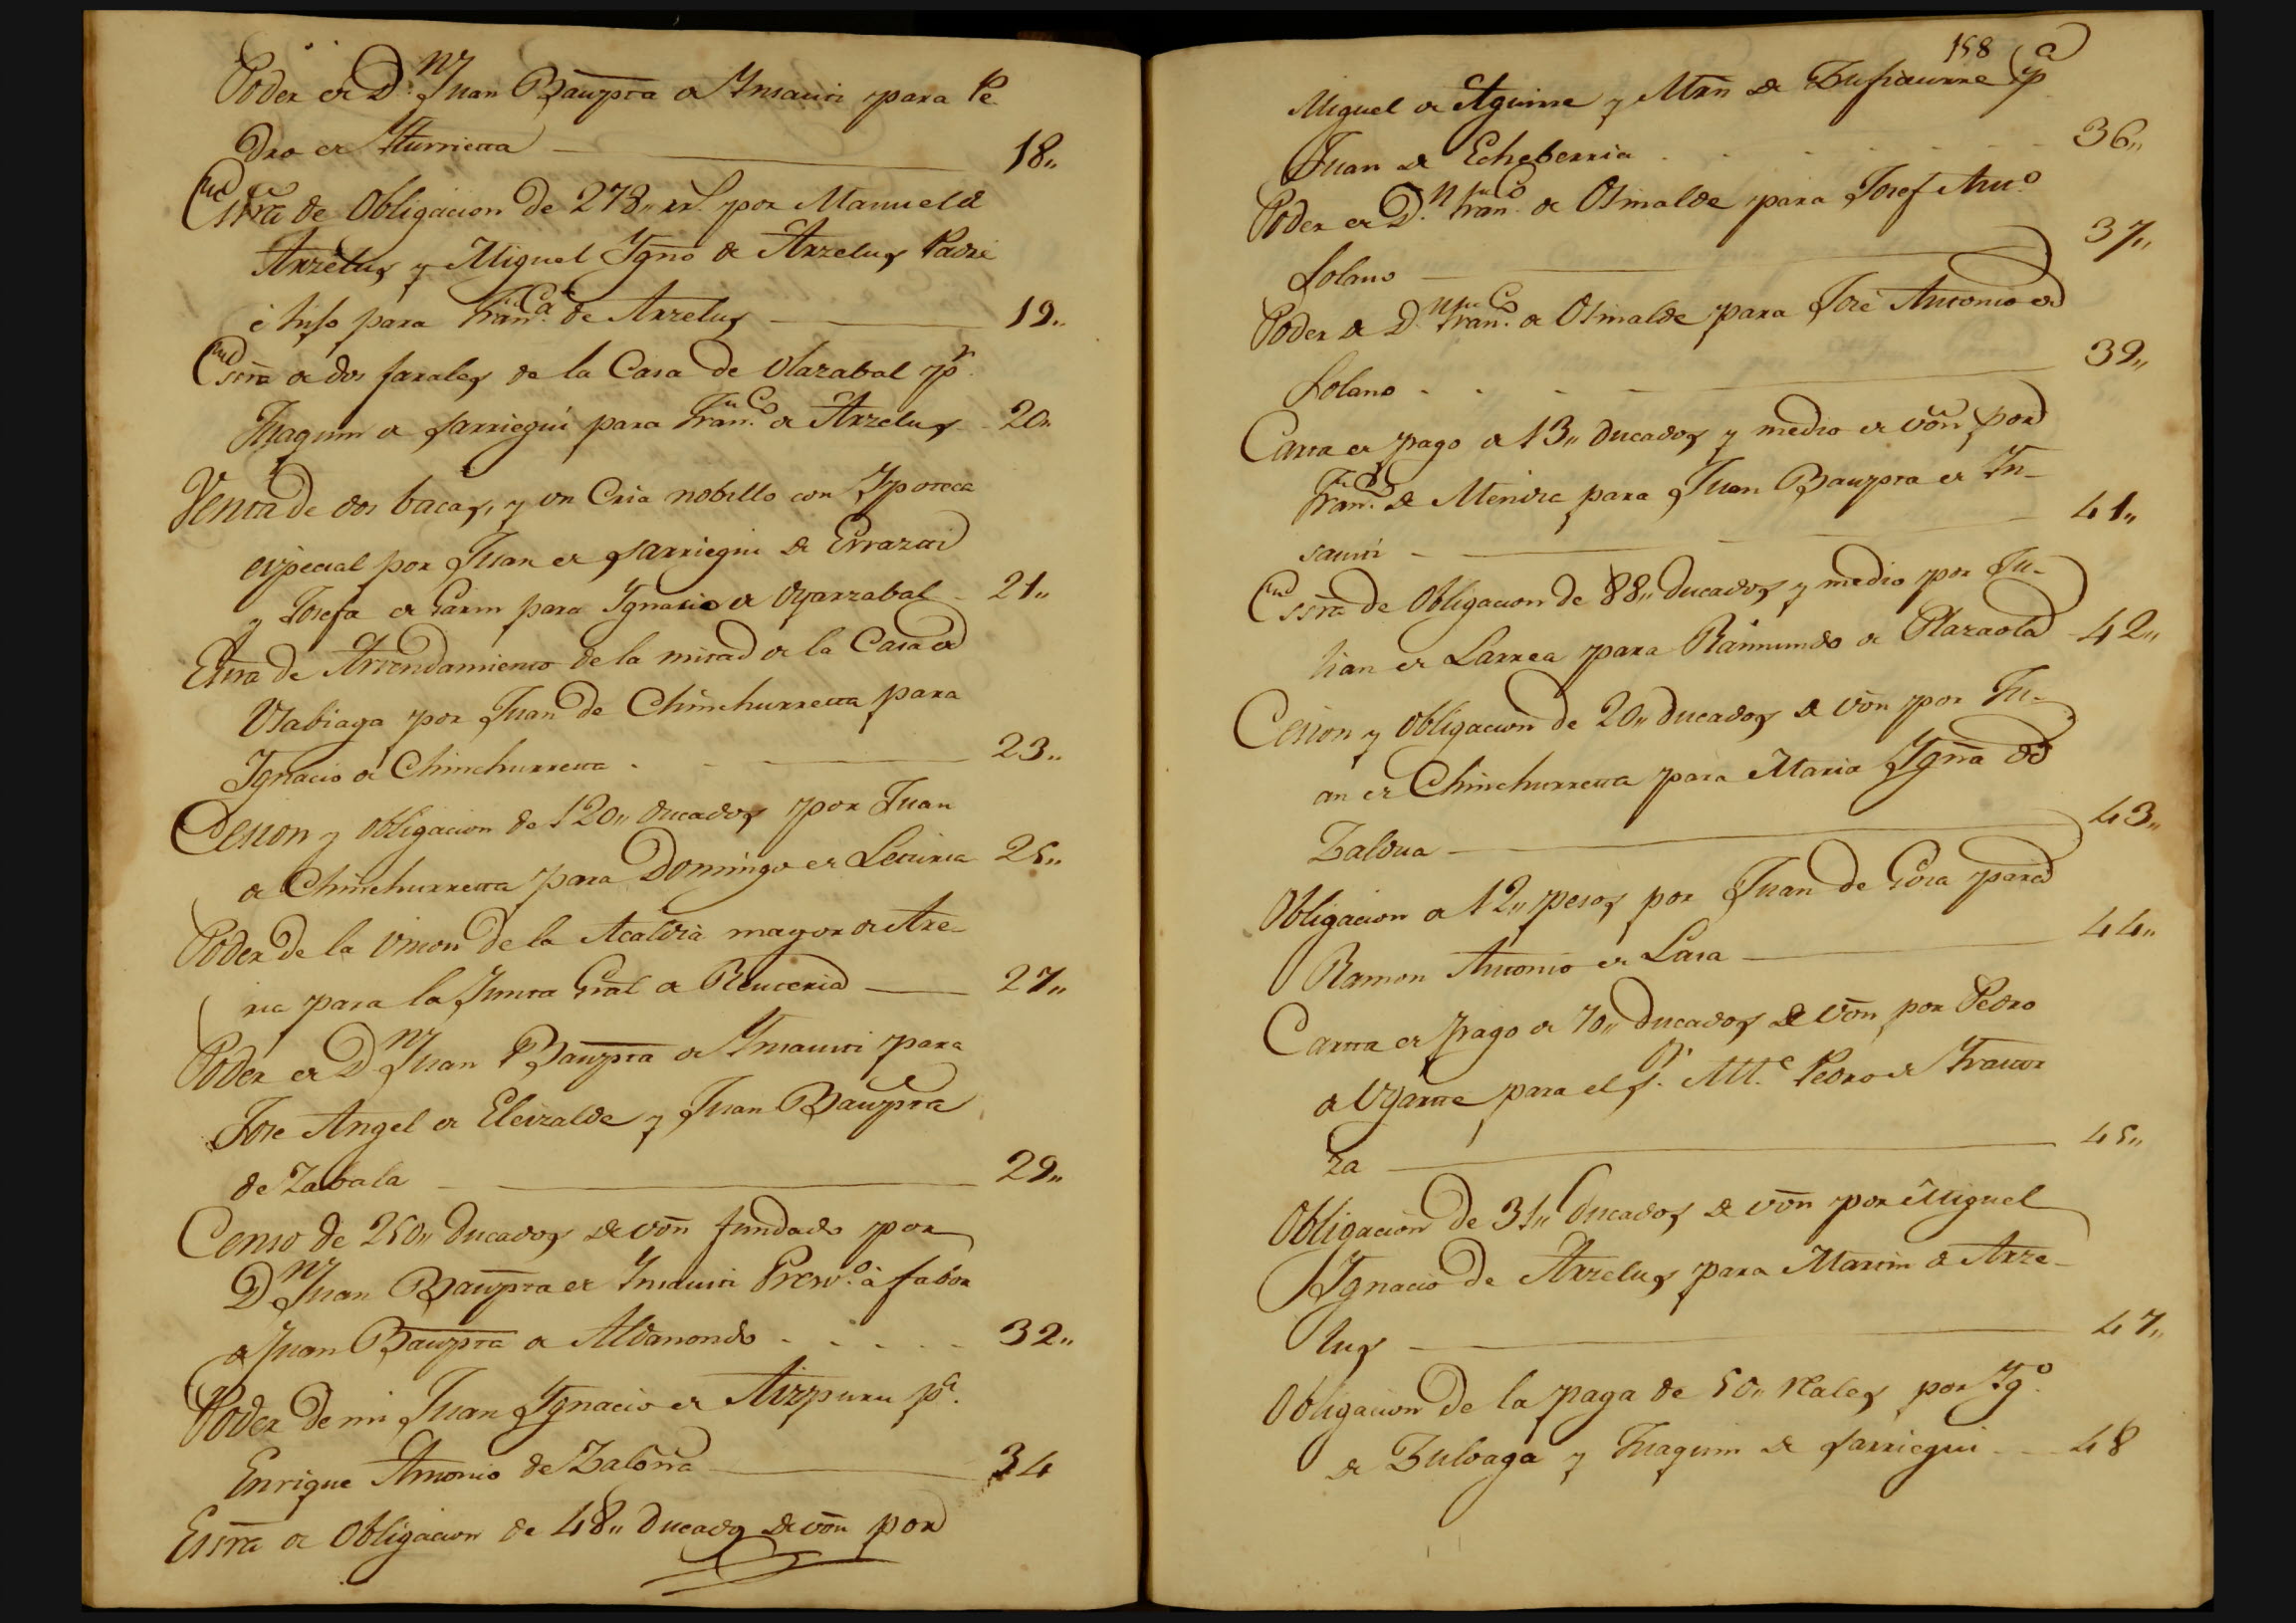 Poder de D.n Juan Baup̄ta de Insausti para Pe
dro de Iturrieta 18,,
Essrã de Obligacion de 278,, rrs. por Manuel de
Arzelus y Miguel Ygño de Arzelus Padre
é hijo para Fran.ca de Arzelus 19,,
Essrã de dos jarales de la Casa de Olazabal p.r
Juaquin de Sarriegui para Fran.co de Arzelus 20,,
Venta de dos bacas, y un Cria nobillo con Ypoteca
especial por Juan de Sarriegui de Errazti
y Josefa de Garin para Ygnacio de Oyarzabal 21,,
Essrã de Arrendamiento de la mitad de la Casa de
Usabiaga por Juan de Chinchurreta para
Ygnacio de Chinchurreta 23,,
Cesion y obligacion de 120,, ducados por Juan
de Chinchurreta para Domingo de Leturia 25,,
Poder de la Union de la Acaldia mayor de Are
ria para la Junta Gral de Renteria 27,,
Poder de D.n Juan Baup̄ta de Insausti para
Jose Angel de Eleizalde y Juan Baup̄ta
de Zabala 29,,
Censo de 250,, ducados de vōn fundado por
D.n Juan Baup̄ta de Insausti Presv.o à fabor
de Juan Baup̄ta de Aldanondo 32,,
Poder de mi Juan Ygnacio de Aizpuru p.a
Enrique Antonio de Zaloña 34
Essrã de Obligacion de 48,, ducados de vōn por
158
Miguel de Aguirre y Mrñ de Zufiaurre p.a
Juan de Echeberria 36,,
Poder de D.n Fran.co de Osinalde para Josef Ant.o
Solano 37,,
Poder de D.n Fran.co de Osinalde para José Antonio de
Solano 39,,
Carta de pago de 13,, ducados y medio de vōn por
Fran.co de Mendia para Juan Baup̄ta de In-
sausti 41,,
Essrã de Obligacion de 88,, ducados y medio por Ju-
lian de Larrea para Raimundo de Plazaola 42,,
Cesion y obligacion de 20,, ducados de vōn por Ju-
an de Chinchurreta para Maria Ygña de
Zaldua 43,,
Obligacion de 12,, pesos por Juan de Gosa para
Ramon Antonio de Lasa 44,,
Carta de pago de 70,, ducados de vōn por Pedro
de Ugarte para el S.r Alt.e Pedro de Irastor
za 45,,
Obligacion de 31,, ducados de vōn por Miguel
Ygnacio de Arzelus para Martin de Arze-
lus 47,,
Obligacion de la paga de 50,, reales por Yg.o
de Zuloaga y Juaquin de Sarriegui 48